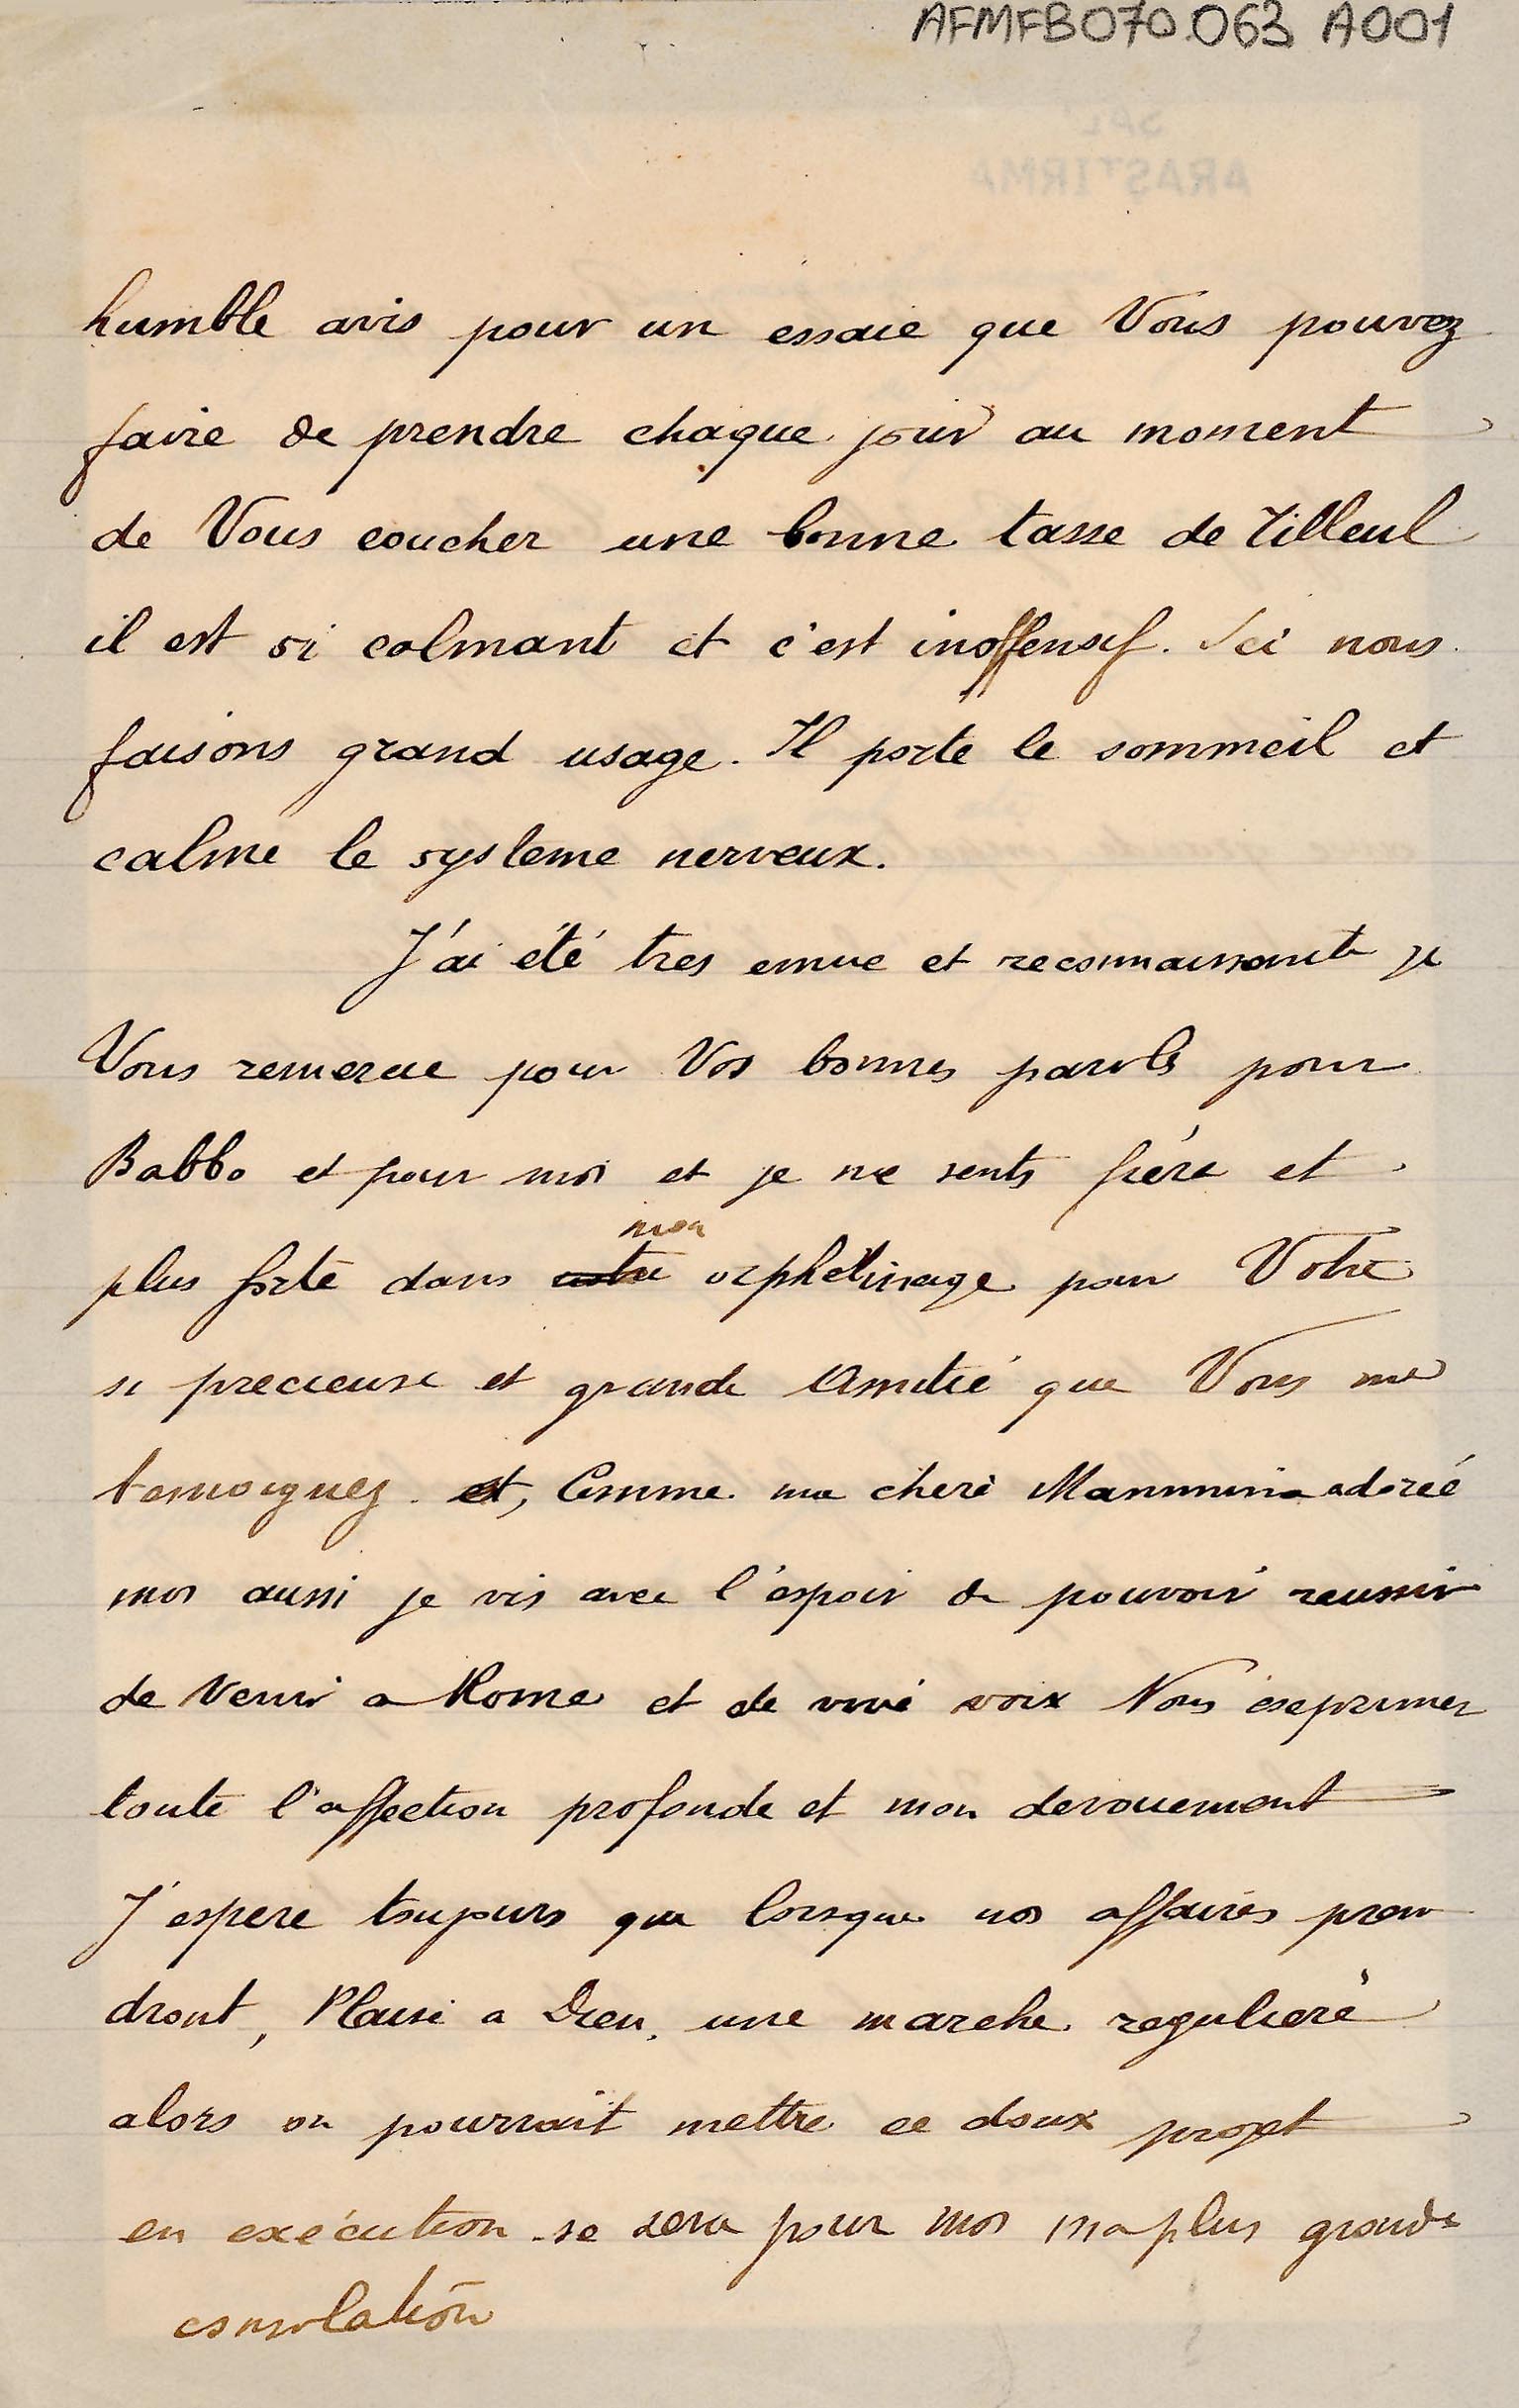 AFMFB070.063 A001
SALT
ARAŞTIRMA
humble avis pour un essaie que Vous pouvez
faire de prendre chaque jour au moment
de Vous coucher une bonne tasse de Tilleul
il est si colmant et c'est inoffensif. Ici nous
faisons grand usage. Il porte le sommeil et
calme le systeme nerveux.
J'ai été tres emue et reconnaissante je
Vous remercie pour Vos bonnes parols pour
Babbo et pour moi et je me sents fiére et
plus forte dans mon orphélinage par Votre
si precieuse et grande Amitié que Vous me
temoignez et, Comme ma cheré Mammina adoréé
moi aussi je vis avec l'espoir de pouvoir reussir
de Venir a Rome et de vivé voix Vous éxeprimer
toute l'affection profonde et mon devouement
J'espere toujours que lorsque nos affaires pren
dront, Plaisi a Dieu, une marche reguliere
alors on pourrait mettre ce doux projet
en exécution se sera pour moi ma plus grande
consolation